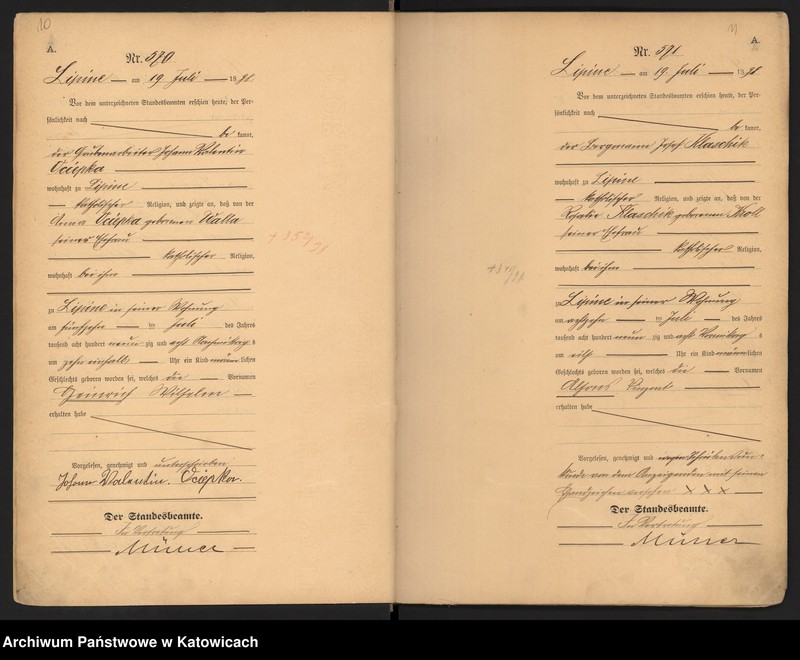 10
A.
Nr. 570
Lipine am 19 Juli 1898
Vor dem unterzeichneten Standesbeamten erschien heute, der Per-
sönlichkeit nach
be kannt,
der Grubenarbeiter Johann Valentin
Ociepka
wohnhaft zu Lipine
katholischer Religion, und zeigte an, daß von der
Anna Ociepka geborenen Walla
seiner Ehefrau
katholischer Religion,
wohnhaft bei ihm
zu Lipine in seiner Wohnung
am fünfzehn ten Juli des Jahres
tausend acht hundert neun zig und acht Nachmittags
um zehn einhalb Uhr ein Kind männlichen
Geschlechts geboren worden sei, welches die Vornamen
Heinrich Wilhelm
erhalten habe
Vorgelesen, genehmigt und unterschrieben
Johann Valentin Ociepka.
Der Standesbeamte.
In Vertretung
11
A.
Nr. 571
Lipine am 19 Juli 1898
Vor dem unterzeichneten Standesbeamten erschien heute, der Per-
sönlichkeit nach
be kannt,
der Bergmann Josef Klaschik
wohnhaft zu Lipine
katholischer Religion, und zeigte an, daß von der
Rosalie Klaschik geborenen Kroll
seiner Ehefrau
katholischer Religion,
wohnhaft bei ihm
zu Lipine in seiner Wohnung
am achtzehn ten Juli des Jahres
tausend acht hundert neun zig und acht Vormittags
um elf Uhr ein Kind männlichen
Geschlechts geboren worden sei, welches die Vornamen
Alfons Vinzent
erhalten habe
Vorgelesen, genehmigt und wegen Schreibensun-
kunde von dem Anzeigenden mit seinem
Handzeichen versehen X X X
Der Standesbeamte.
In Vertretung
Archiwum Państwowe w Katowicach